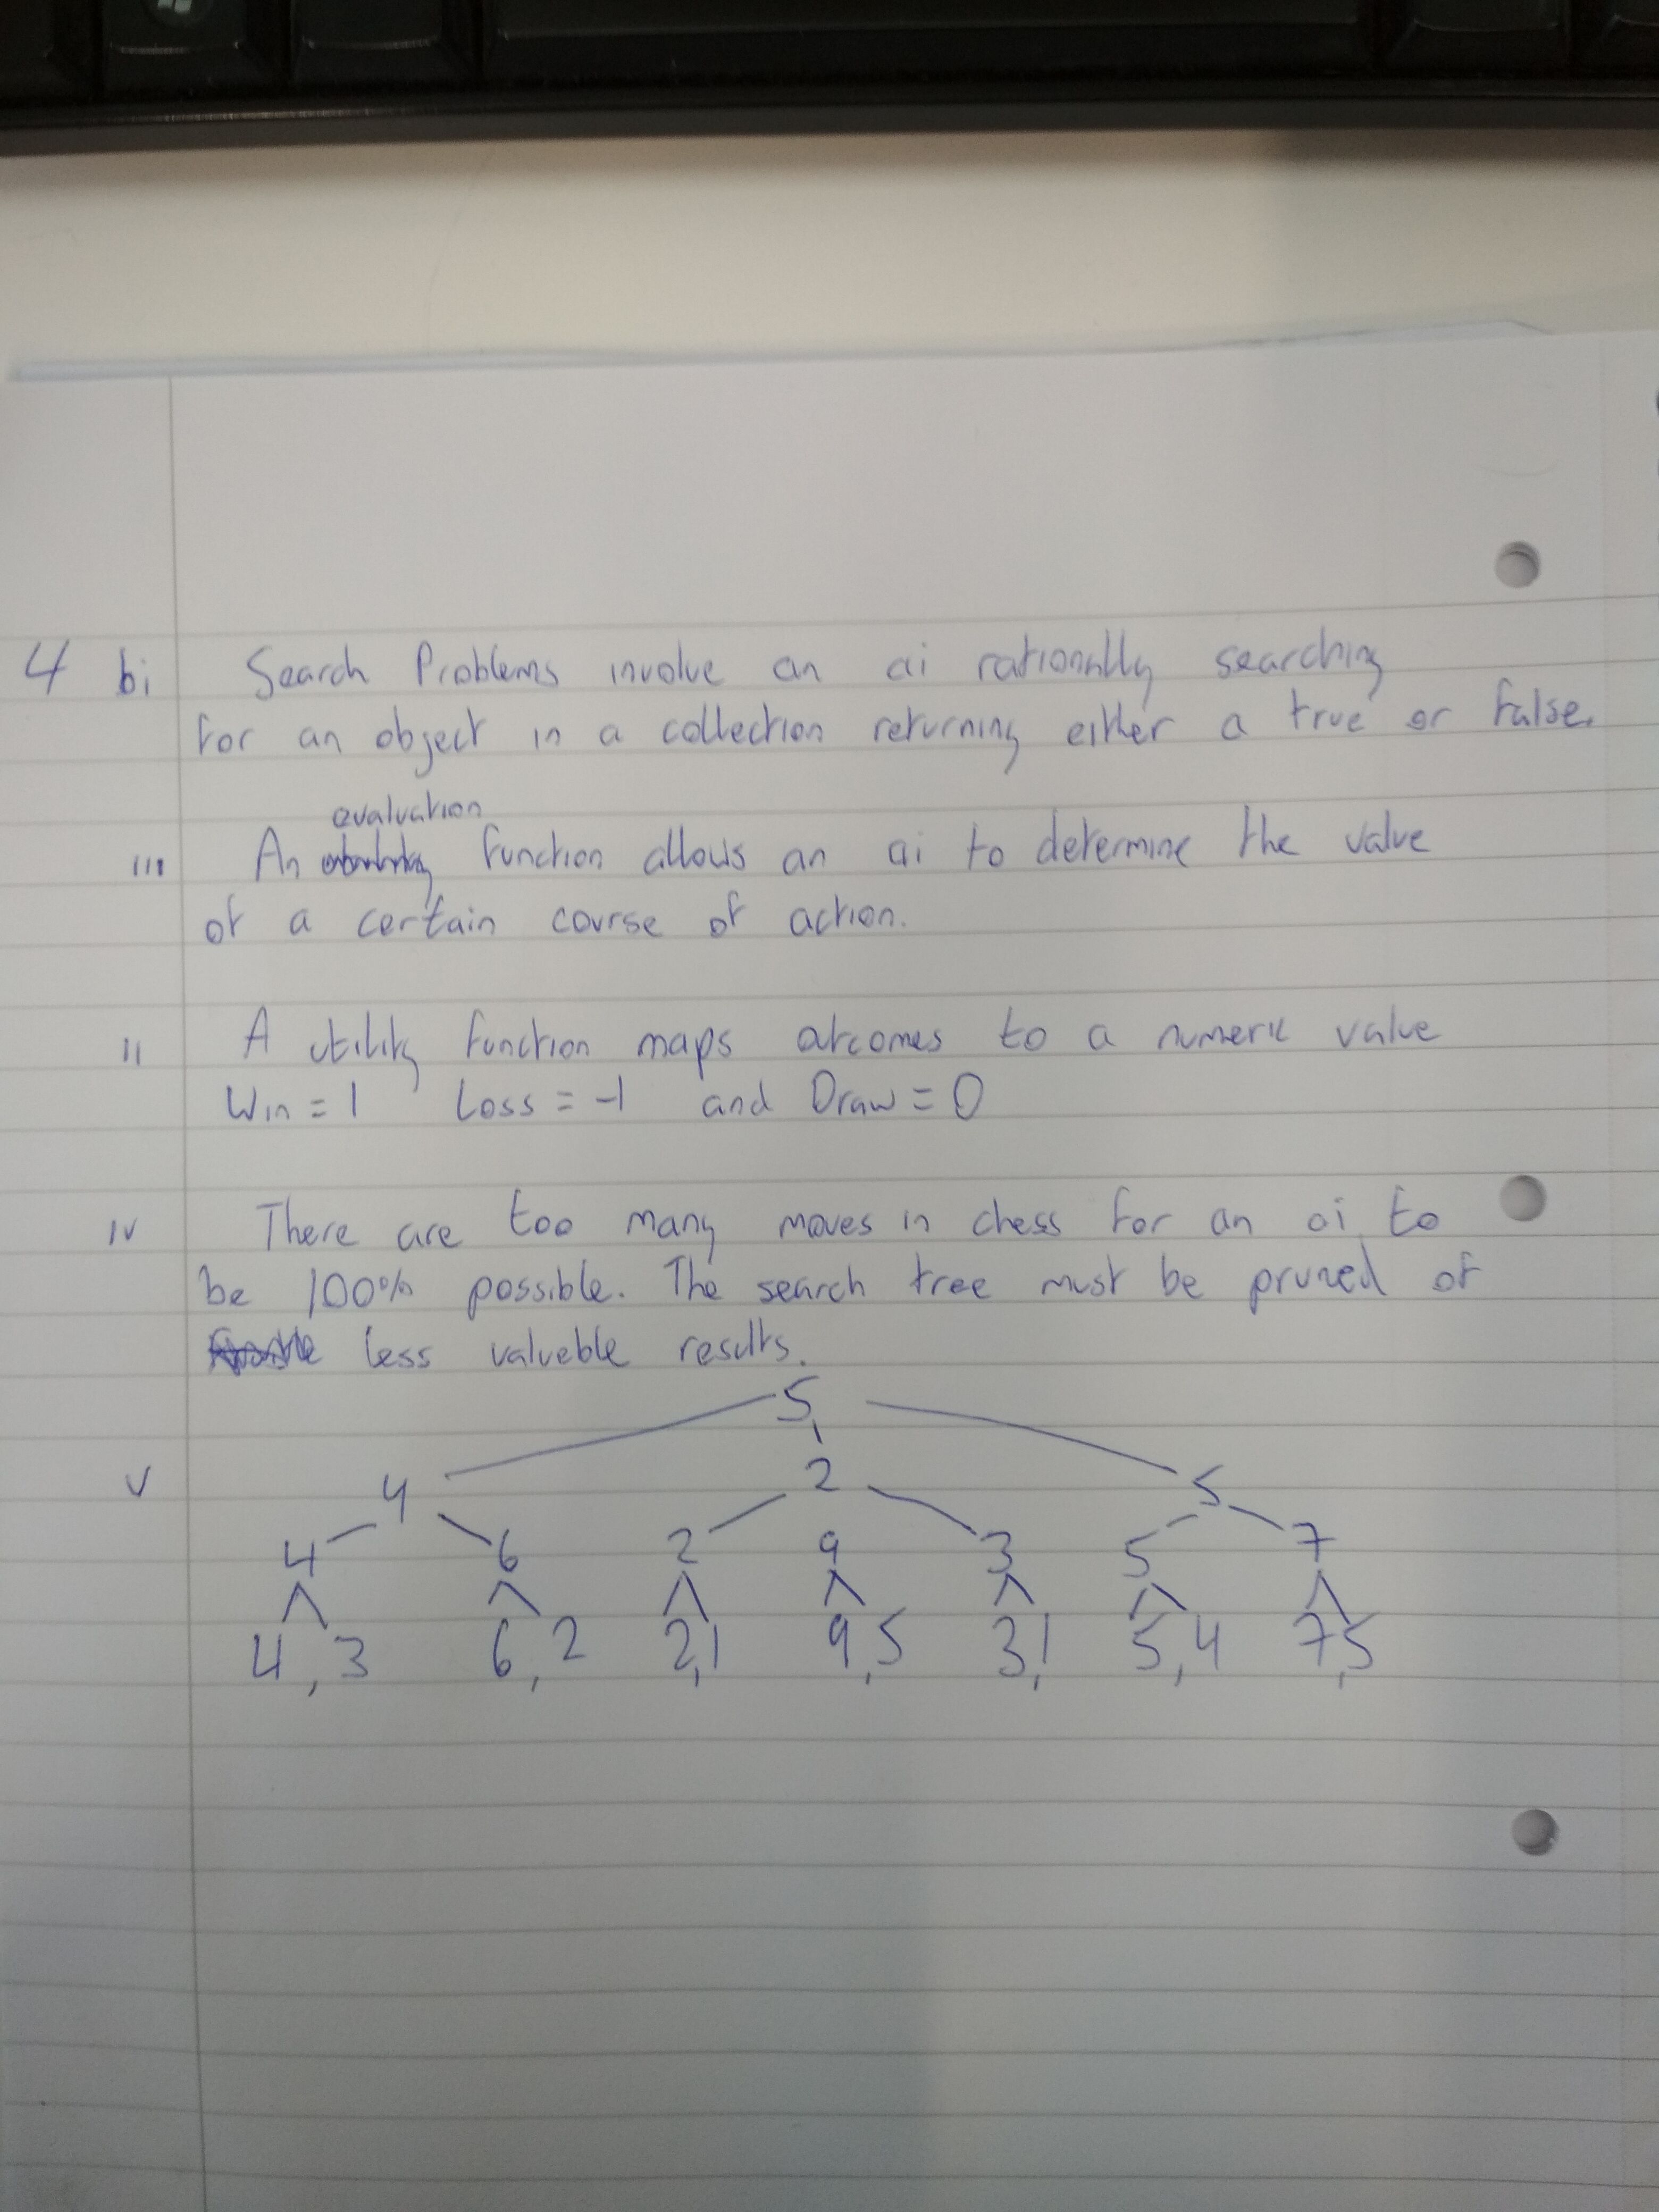 4 bi Search Problems involve an ai rationally searching
for an object in a collection returning either a true or false.
evaluation
iii An function allows an ai to determine the value
of a certain course of action.
ii A utility function maps outcomes to a numeric value
Win = 1 Loss = -1 and Draw = 0
iv There are too many moves in chess for an ai to
be 100% possible. The search tree must be pruned of
less valueble results.
5
v 4 2 5
4 6 2 9 3 5 7
4,3 6,2 2,1 9,5 3,1 5,4 7,5